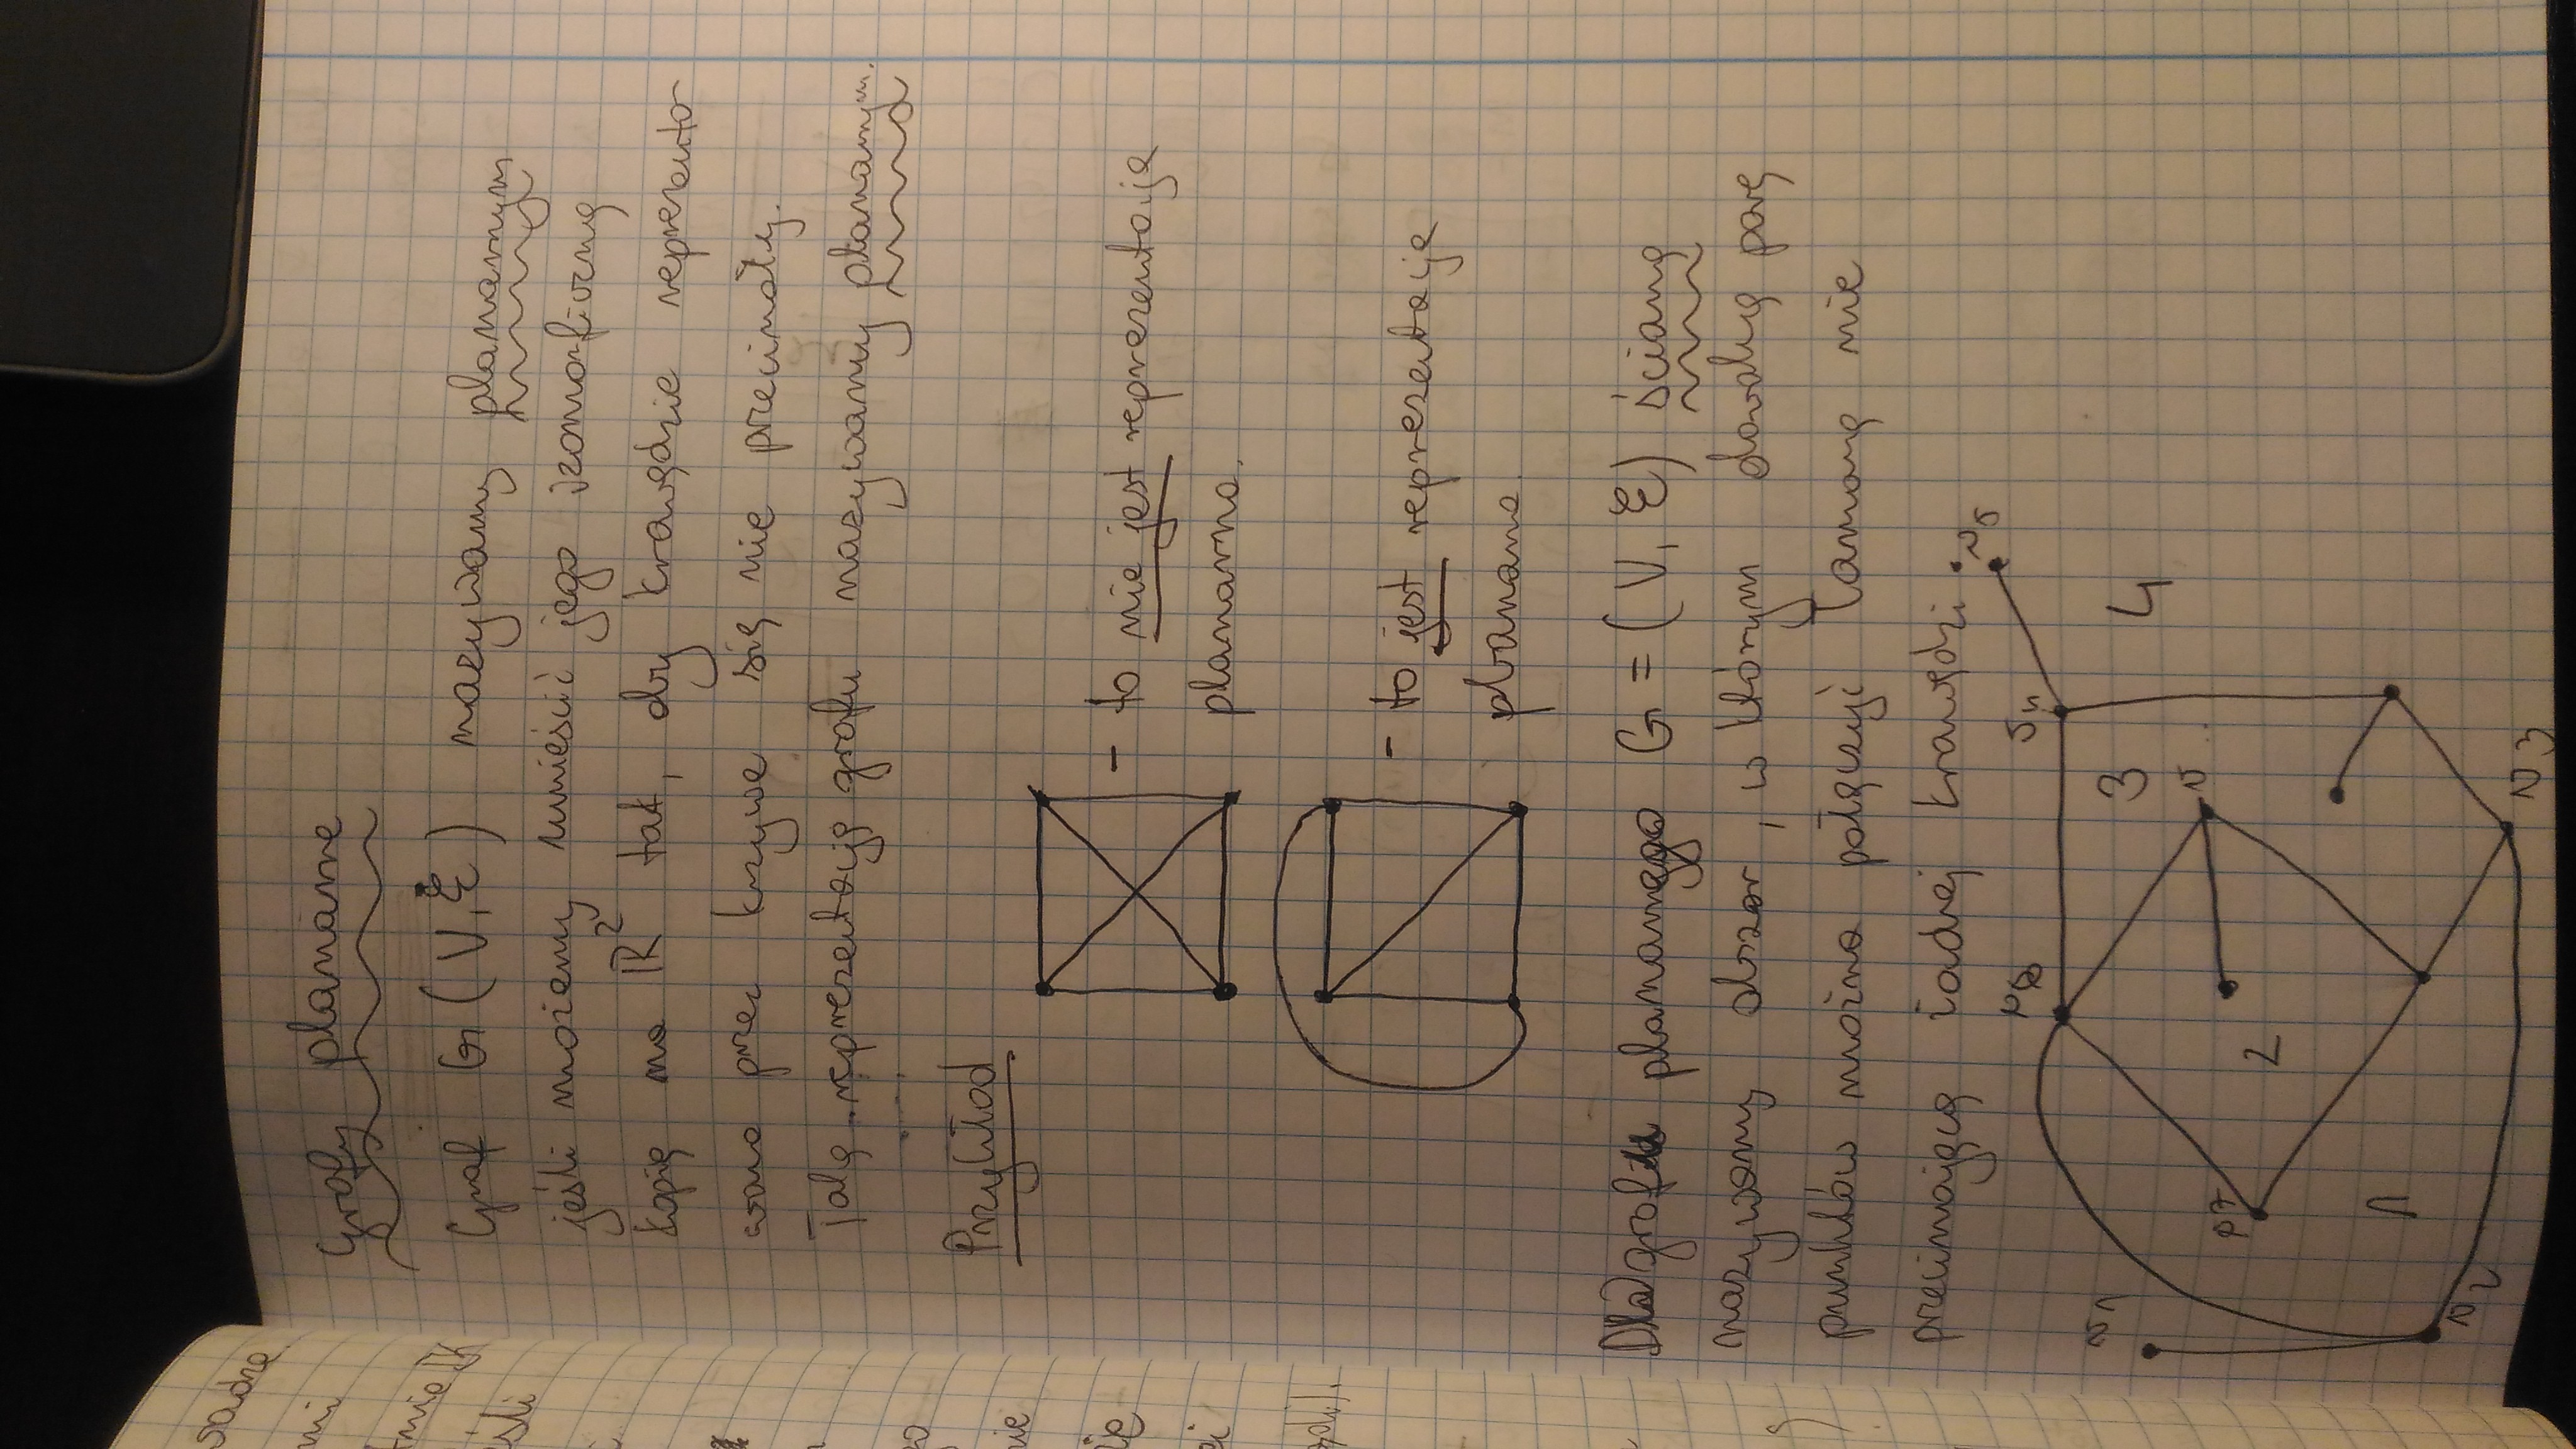 Grafy planarne
Graf G(V,E) nazywamy planarnym
jeśli możemy umieścić jego izomorficzną
kopię na R² tak, aby krawędzie reprezento
wane przez krzywe się nie przecinały.
Taką reprezentację grafu nazywamy planarnym.
Przykład
- to nie jest reprezentacja
planarna.
- to jest reprezentacja
planarna
Dla grafu planarnego G = (V, E) ścianą
nazywamy obszar, w którym dowolną parę
punktów można połączyć łamaną nie
przecinającą żadnej krawędzi.
v5
v8
v4
v1
3
4
v7
v
2
1
v2
v3